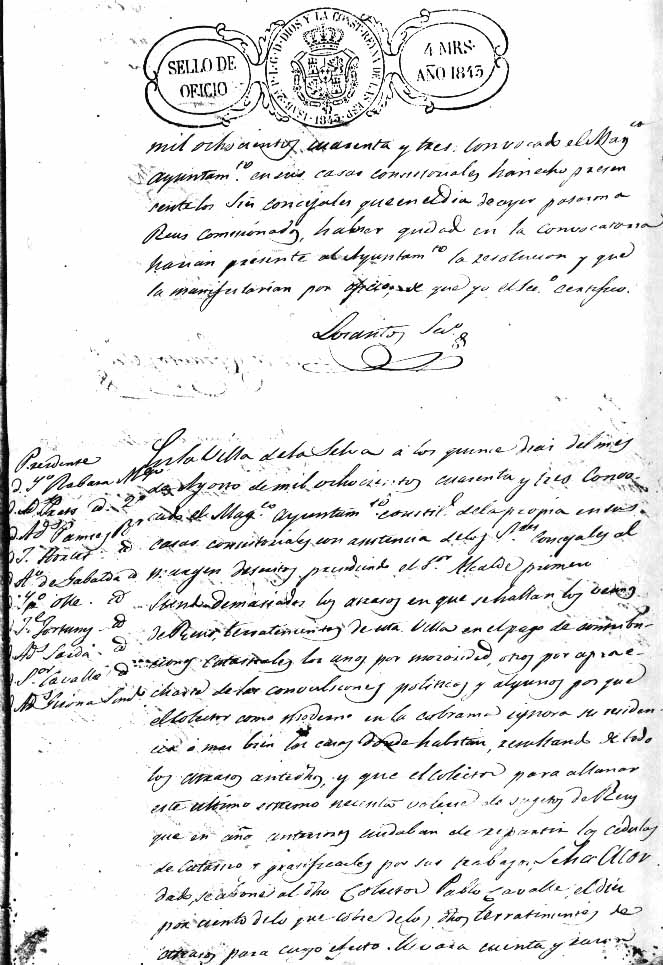 SELLO DE
OFICIO
ISAB. 2ª P. L. G. D. DIOS Y LA CONST. REYNA DE LAS ESP.
1843
4 MRS.
AÑO 1843
mil ochocientos cuarenta y tres, convocado el Mag.co
Ayuntam.to en sus casas consistoriales han echo presen
sente los Sres concejales que en el dia de ayer pasaron a
Reus comisionados, haber quedado en la convocatoria
harian presente al Ayuntam.to la resolucion y que
la manifestarian por oficio, de que yo el Sec.o certifico.
Sec.o
En la Villa de la Selva a los quince dias del mes
de Agosto de mil ochocientos cuarenta y tres Convo
cado el Mag.co Ayuntam.to constit.l de la propia en sus
casas consistoriales con asistencia de los S.res Concejales al
margen descritos presidiendo el S.or Alcalde primero
Siendo demasiados los atrasos en que se hallan los
de Reus terratenientes de esta Villa en el pago de contribu
ciones Catastrales los unos por morosidad, otros por aprove
charse de las convulsiones politicas y algunos por que
el Colector como moderno en la cobranza ignora su residen
cia o mas bien las casas donde habitan, resultando de todo
los atrasos antedhos, y que el Colector para allanar
este ultimo necesita valerse de sugetos de Reus
que en años anteriores cuidaban de repartir las cedulas
de Catastro y gratificarles por sus trabajos, Se ha Acor
dado, se abone al dho Colector Pablo Cavalle, el diez
por ciento de lo que cobre de los dhos terratenientes de
atrasos para cuyo efecto llevara cuenta y razon
Presidente
Rabasa
Pamies
de Gabalda
Olle
Fortuny
Cavalle